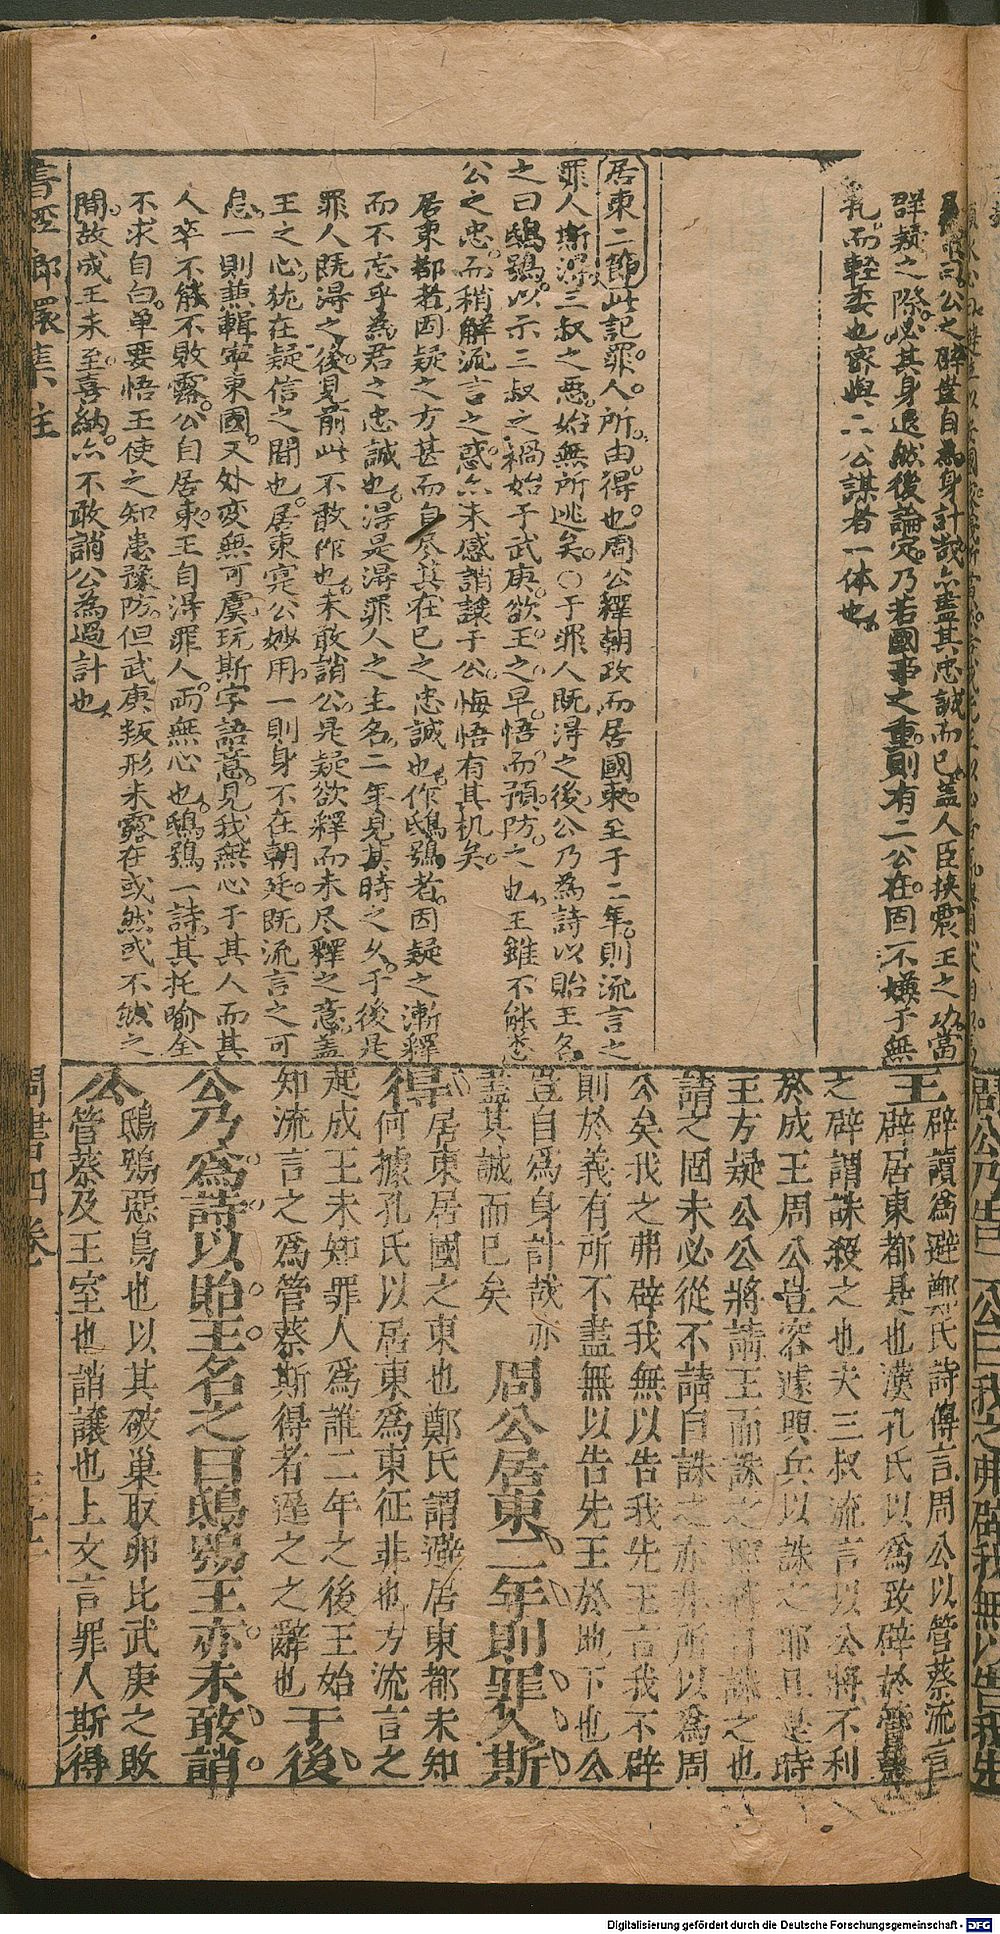 群疑之際必其身退然後論定乃若國事之重則有二公在固不嫌于無
乱而輕委也密與二公謀者一体也
居東二節此記罪人所由得也周公釋朝政而居國東至于二年則流言之
罪人斯得三叔之惡始無所逃矣○于罪人既得之後公乃為詩以貽王名
之曰鴟鴞以示三叔之禍始于武庚欲王之早悟而預防之也王雖不能悉
公之忠而稍解流言之惑亦未感誚讓于公悔悟有其机矣
居東都者因疑之方甚而自尽其在已之忠誠也作鴟鴞者因疑之漸釋
而不忘乎為君之忠誠也得是得罪人之主名二年見其時之久于後是
罪人既得之後見前此不敢作也未敢誚公是疑欲釋而未尽釋之意盖
王之心猶在疑信之間也居東寔公妙用一則身不在朝廷既流言之可
息一則兼輯寧東國又处变無可虞玩斯字語意見我無心于其人而其
人卒不能不敗露公自居東王自得罪人而無心也鴟鴞一詩其托喻全
不求自白单要悟王使之知患豫防但武庚叛形未露在或然或不然之
間故成王未至喜納亦不敢誚公為過計也
書經郎環集註
王 辟讀為避鄭氏詩傳言周公以管蔡流言
辟居東都是也漢孔氏以為致辟於管蔡
之辟謂誅殺之也夫三叔流言以公將不利
於成王周公豈容遽興兵以誅之耶且是時
王方疑公公將請王而誅之
請之固未必從不請自誅之亦非所以為周
公矣我之弗辟我無以告我先王言我不辟
則於義有所不盡無以告先王於地下也公
豈自為身計哉亦
盡其誠而已矣 周公居東二年則罪人斯
得 居東居國之東也鄭氏謂避居東都未知
何據孔氏以居東為東征非也方流言之
起成王未知罪人為誰二年之後王始
知流言之為管蔡斯得者遲之之辭也 于後
公乃為詩以貽王名之曰鴟鴞王亦未敢誚
公 鴟鴞惡鳥也以其破巢取卵比武庚之敗
管蔡及王室也誚讓也上文言罪人斯得
周書四卷
Digitalisierung gefördert durch die Deutsche Forschungsgemeinschaft - DFG